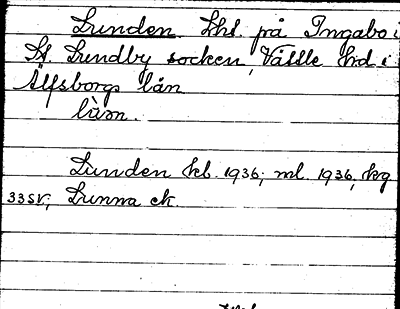 Lunden. Lht. på Ingabo i
St. Lundby socken, Vättle hd i
Älfsborgs län
lùn.
Lunden kb. 1936; ml. 1936, kg
33SV; Lunna ek.